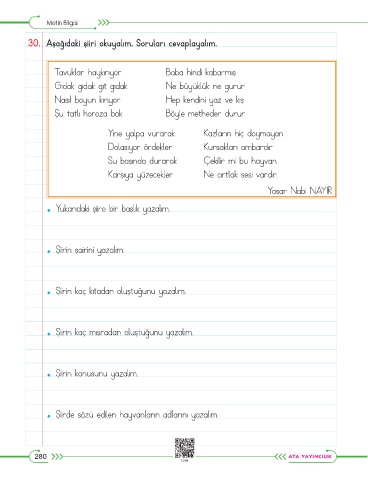 Metin Bilgisi
30. Aşağıdaki şiiri okuyalım. Soruları cevaplayalım.
Tavuklar haykırıyor
Gıdak gıdak git gıdak
Nasıl boyun kırıyor
Şu tatlı horoza bak
Baba hindi kabarmış
Ne büyüklük ne gurur
Hep kendini yaz ve kış
Böyle metheder durur
Yine yalpa vurarak
Dolaşıyor ördekler
Su başında durarak
Karşıya yüzecekler
Kazların hiç doymayan
Kursakları ambardır
Çekilir mi bu hayvan
Ne cırtlak sesi vardır
Yaşar Nabi NAYIR
Yukarıdaki şiire bir başlık yazalım.
Şiirin şairini yazalım.
Şiirin kaç kıtadan oluştuğunu yazalım.
Şiirin kaç mısradan oluştuğunu yazalım.
Şiirin konusunu yazalım.
Şiirde sözü edilen hayvanların adlarını yazalım.
280
ATA YAYINCILIK